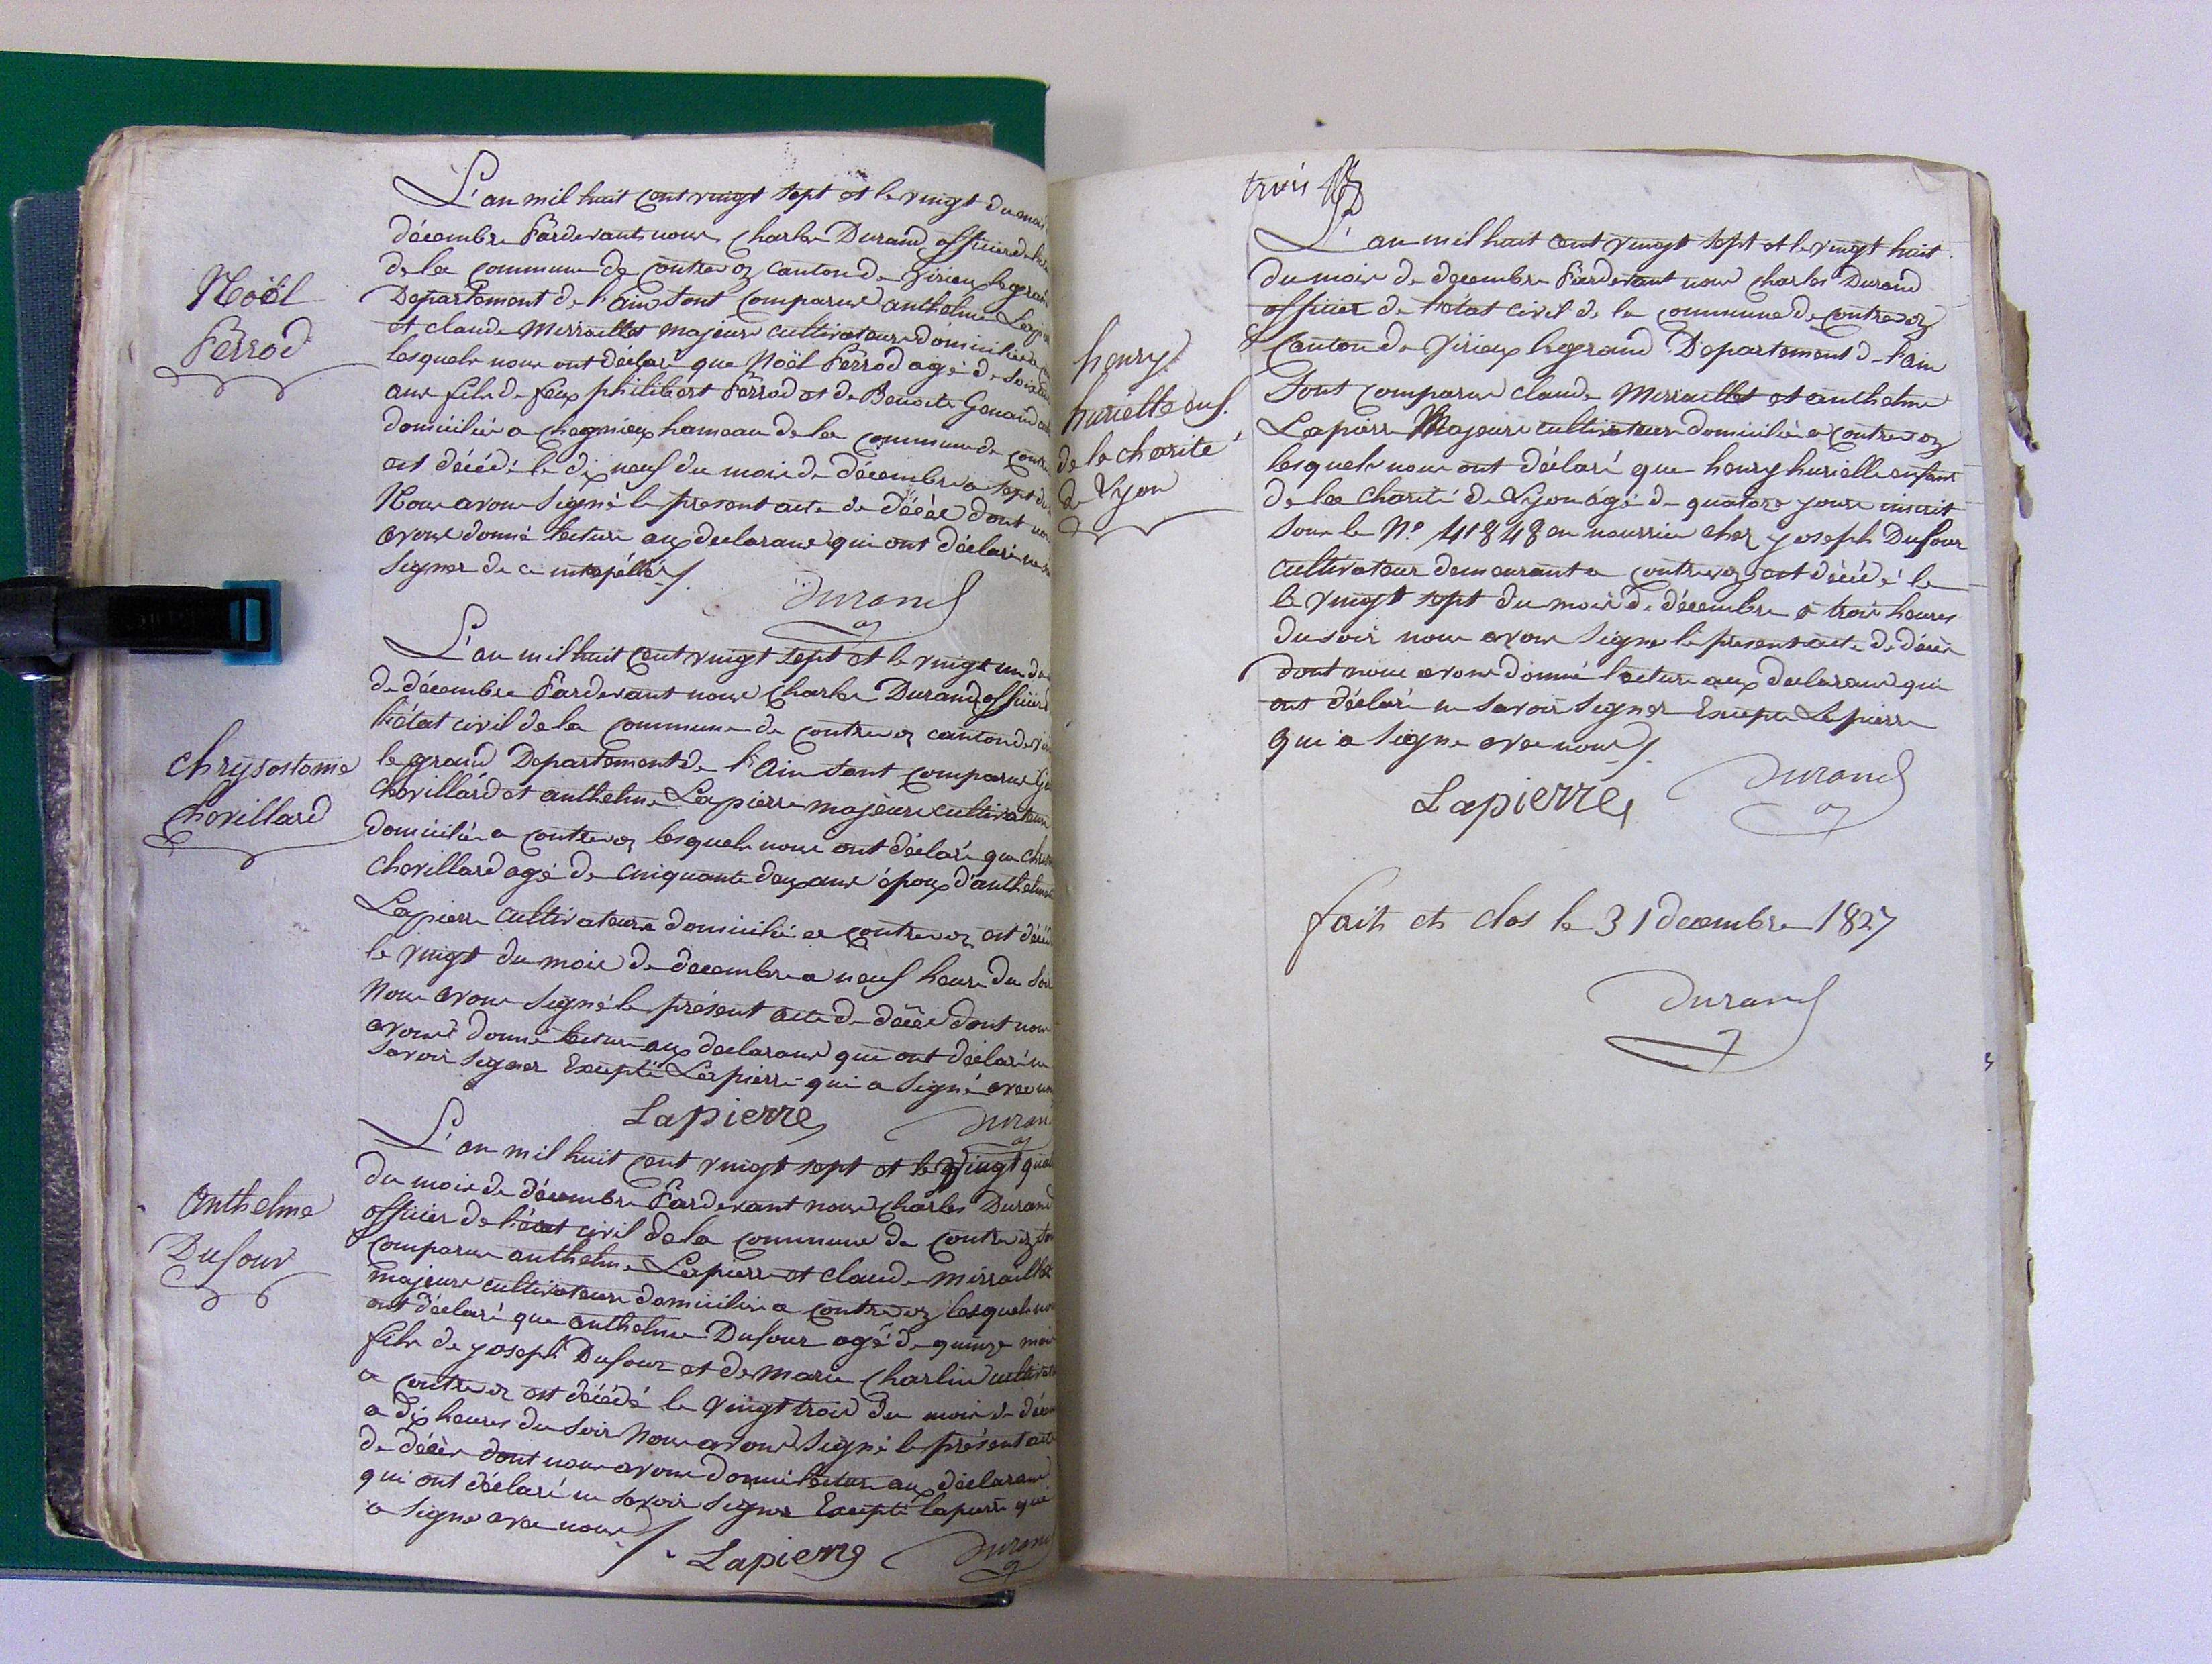 L'an mil huit cent vingt sept et le vingt du mois
décembre Pardevant nous Charles Durand officier de l'état
de la Commune de Contrevoz Canton de Virieu le grand
Noël
Perrod
Département de l'ain sont Comparus anthelme Lapi
et claude Mirraillet majeurs cultivateurs domiciliés a
lesquels nous ont déclaré que Noël Perrod agé de soixante
ans fils de feux philibert Perrod et de Benoite Genand
domicilié a chegnieu hameau de la Commune de Contre
est décédé le dix neuf du mois de décembre a sept
Nous avons signé le présent acte de décès dont nous
avons donné lecture aux déclarans qui ont déclaré ne
signer de ce interpéllés /.
Durand
L'an mil huit cent vingt sept et le vingt un du
de décembre Pardevant nous Charles Durand officier
l'état civil de la Commune de Contrevoz canton de Vir
Chrysostome
Chovillard
le grand Département de l'Ain sont comparus
Chovillard et anthelme Lapierre majeurs cultivateurs
domiciliés a contrevoz lesquels nous ont déclaré que Ch
Chovillard agé de cinquante deux ans époux d'anthelme
Lapierre cultivateurs domicilié a Contrevoz est décéd
le vingt du mois de decembre a neuf heure du soir
Nous avons signé le présent acte de décès dont nous
avons donné lecture aux declarans qui ont déclaré ne
savoir signer Excepté Lapierre qui a signé avec nous
Lapierre Durand
L'an mil huit cent vingt sept et le Vingt quat
du mois de décembre Pardevant nous Charles Durand
officier de l'état civil de la commune de Contrevoz
Anthelme
Dufour
comparus anthelme Lapierre et claude mirraillet
majeurs cultivateurs domiciliés a Contrevoz lesquels nous
ont déclaré que anthelme Dufour agé de quinze mois
fils de joseph Dufour et de marie Charlin cultivat
a Contrevoz est décédé le vingt trois du mois de décem
a dix heures du soir Nous avons signé le présent acte
de décès dont nous avons donné lecture aux déclarans
qui ont déclaré ne savoir signer Excepté lapierre qui
a signé avec nous /.
Lapierre Durand
trois
L'an mil huit cent vingt sept et le vingt huit
du mois de decembre Pardevant nous Charles Durand
officier de l'état civil de la commune de Contrevoz
Canton de Virieux legrand Département de l'ain
henry
huriette enf.
de la charité
de Lyon
Sont Comparus claude Mirraillet et anthelme
Lapierre Majeurs cultivateurs domiciliés a Contrevoz
lesquels nous ont déclaré que henry hurielle enfant
de la Charité de Lyon âgé de quatorze jours inscrit
sous le N.º 41848 en nourrice chez joseph Dufour
cultivateur demeurant a contrevoz est décédé le
le vingt sept du mois de décembre a trois heures
du soir nous avons signé le présent acte de décès
dont nous avons donné lecture aux déclarans qui
ont déclaré ne savoir signer Excepté Lapierre
qui a signé avec nous /.
Lapierre Durand
fait et clos le 31 decembre 1827
Durand